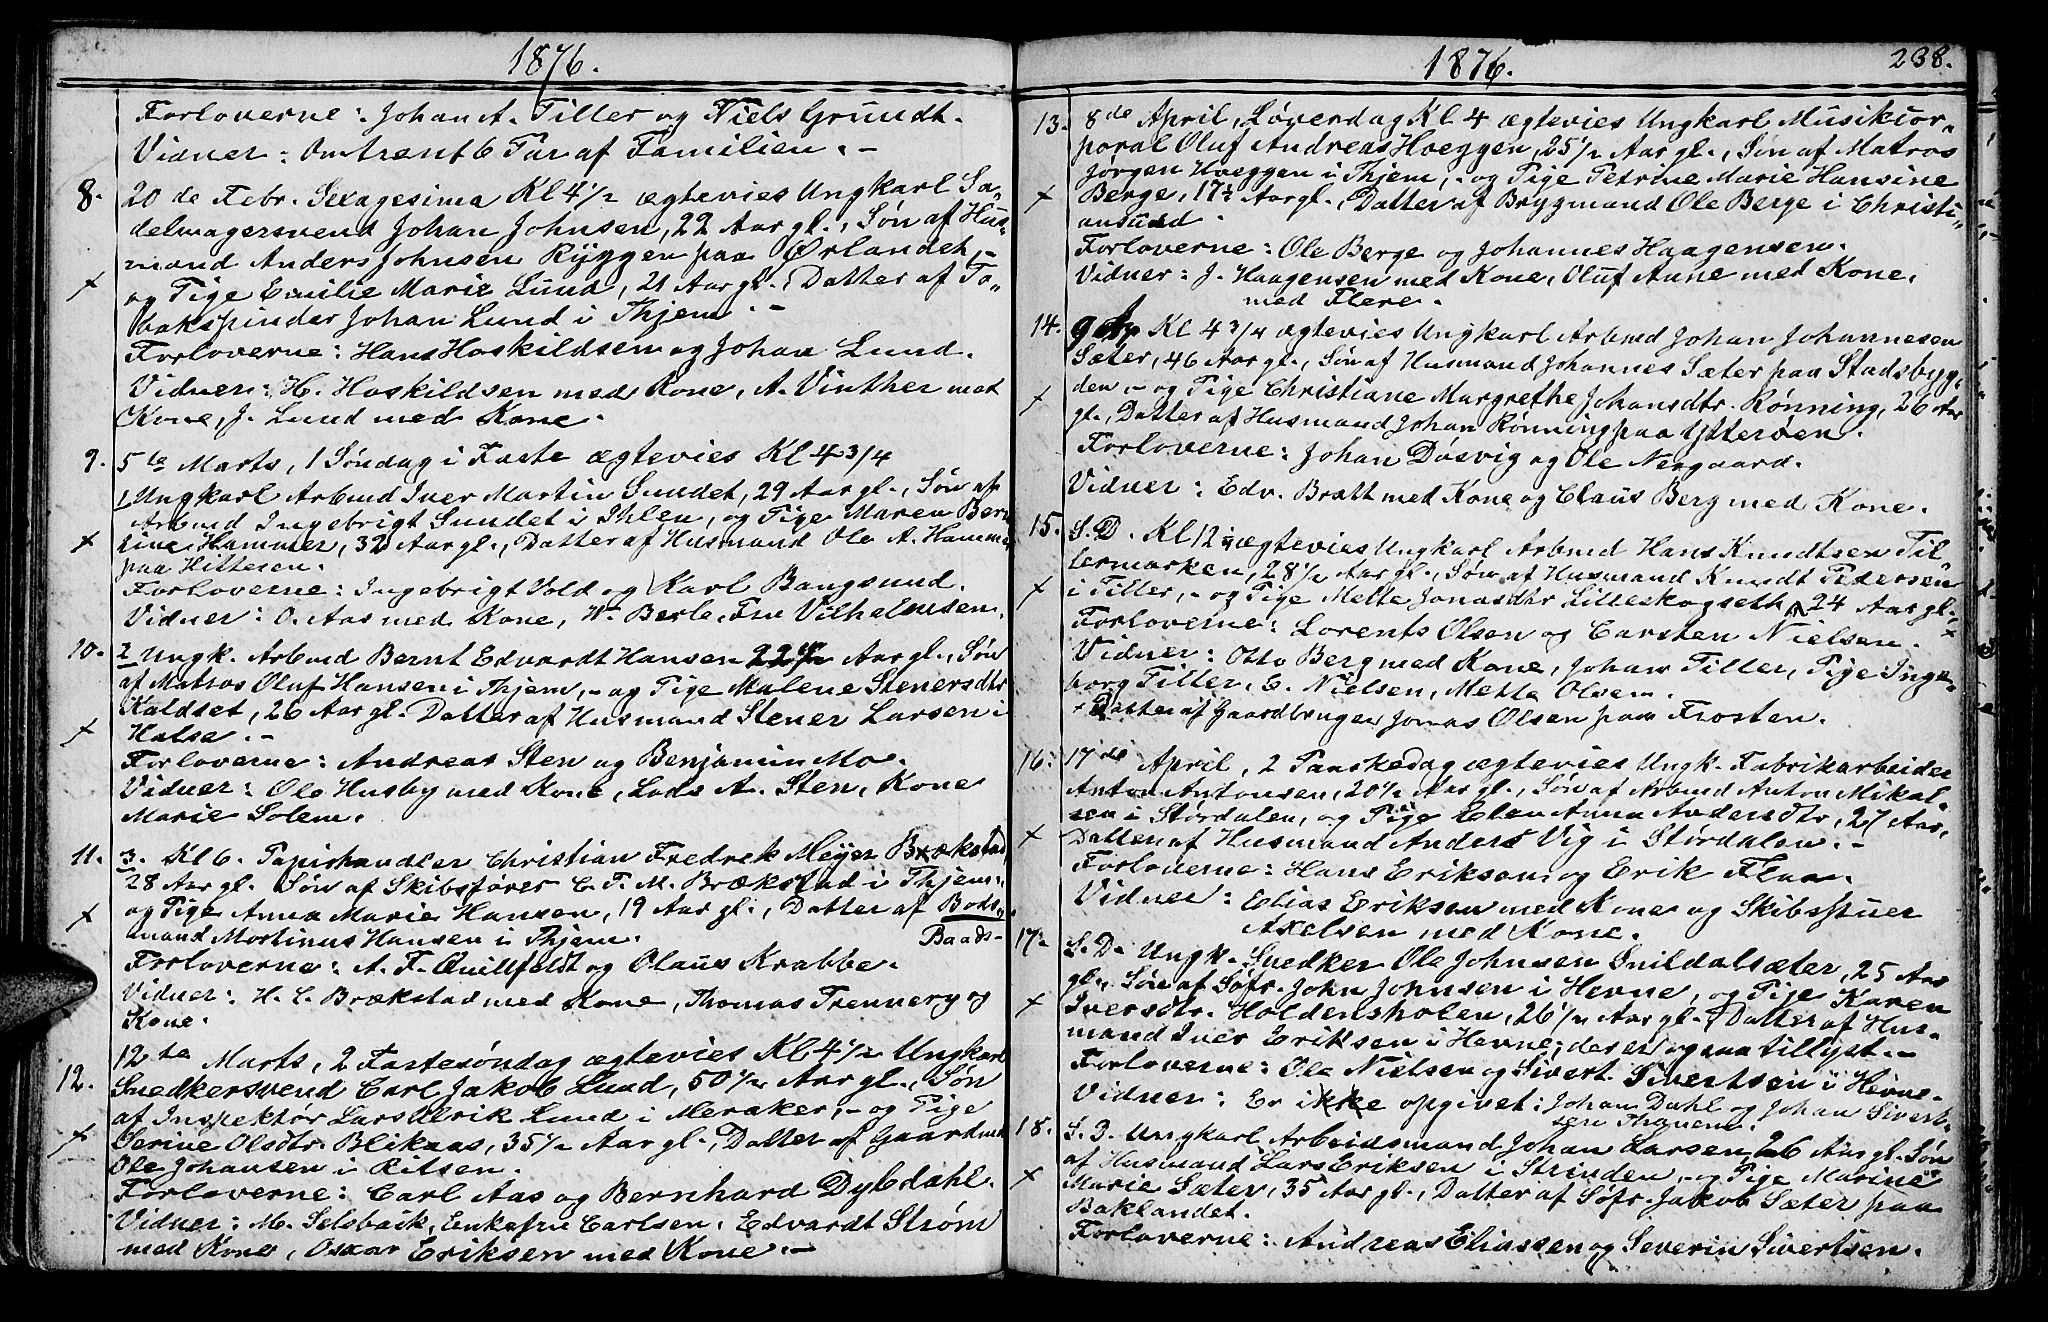 1876.
Forloverne: Johan A. Tiller og Niels Grundt.
Vidner: Omtrent 6 Par af Familien. -
8. 20de Febr. Sexagesima Kl 4 1/2 ægtevies Ungkarl Sa-
delmagersvend Johan Johnsen, 22 Aar gl., Søn af Hus-
mand Anders Johnsen Ryggen paa Ørlandet, -
x og Pige Emilie Marie Lund, 21 Aar gl., Datter af To-
bakspinder Johan Lund i Thjem. -
Forloverne: Hans Hoskildsen og Johan Lund.
Vidner: H. Hoskildsen med Kone, A. Vinther med
Kone, J. Lund med Kone.
9. 5te Marts, 1 Søndag i Faste ægtevies Kl 4 3/4
1 Ungkarl Arbmd Iver Martin Sundet, 29 Aar gl., Søn af
Arbmd Ingebrigt Sundet i Ihlen, og Pige Maren Bern
x tine Hammer, 32 Aar gl., Datter af Husmand Ole A. Hamme
paa Hitteren.
Forloverne: Ingebrigt Vold og Karl Bangsund.
Vidner: O. Aas med Kone, W. Berle, Fru Vilhelmsen.
10. 2 Ungk. Arbmd Bernt Edvardt Hansen 22 1/2 Aar gl., Søn
af Matros Oluf Hansen i Thjem, - og Pige Malene Stenersdtr
Kaldset, 26 Aar gl. Datter af Husmand Stener Larsen i
x Halse. -
Forloverne: Andreas Sten og Benjamin Mo.
Vidner: Ole Husby med Kone, Lods A. Sten, Kone
Marie Solem.
11. 3. Kl 6. Papirhandler Christian Fredrek Meyer Brækstad
28 Aar gl. Søn af Skibsfører C. F. M. Brækstad i Thjem:
x og Pige Anna Marie Hansen, 19 Aar gl., Datter af Bods-
mand Mortinus Hansen i Thjem. Baads-
Forloverne: A. F. Quillfeldt og Olaus Krabbe.
Vidner: H. L. Brækstad med Kone, Thomas Trennery og
Kone.
12. 12te Marts, 2 Fastesøndag ægtevies Kl 4 1/2 Ungkarl
Snedkersvend Carl Jakob Lund, 50 1/2 Aar gl., Søn
af Inspektør Lars Ulrik Lund i Meraker, - og Pige
x Serine Olsdtr. Blikaas, 35 1/2 Aar gl., Datter af Gaardmd
Ole Johansen i Ritsen.
Forloverne: Carl Aas og Bernhard Dybdahl.
Vidner: M. Selsbaik, Enkefru Carlsen, Edvardt Strøm
med Kone, Oscar Eriksen med Kone. -
1876. 238.
13. 8de April, Løverdag Kl 4 ægtevies Ungkarl Musikcor-
poral Oluf Andreas Hoeggen, 25 1/2 Aar gl., Søn af Matros
Jørgen Hoeggen i Thjem, - og Pige Petrine Marie Hansine
x Berge, 17 1/2 Aar gl., Datter af Brygmand Ole Berge i Christi-
ansund
Forloverne: Ole Berge og Johannes Haagensen.
Vidner: J. Haagensen med Kone, Oluf Aune med Kone,
med Flere.
14. 9 Ap Kl 4 3/4 ægtevies Ungkarl Arbmd Johan Johannesen
Sæter, 46 Aar gl., Søn af Husmand Johannes Sæter paa Stadsbyg-
x den, - og Pige Christiane Margrethe Johansdtr. Rønning, 26 Aar
gl., Datter af Husmand Johan Rønning paa Ytterøen.
Forloverne: Johan Døsvig og Ole Nergaard.
Vidner: Edv. Brætt med Kone og Claus Berg med Kone.
15. S. D. Kl 12 ægtevies Ungkarl Arbmd Hans Knudtsen Til
lermarken, 28 1/2 Aar gl., Søn af Husmand Knudt Pedersen
x i Tiller, - og Pige Mette Jonasdtr Lilleskogseth, 24 Aar gl., x
Forloverne: Lorents Olsen og Carsten Nielsen.
Vidner: Otto Berg med Kone, Johan Tiller, Pige Inge-
borg Tiller, C. Nielsen, Mette Olsen.
x Datter af Gaardbruger Jonas Olsen paa Frosten.
16. 17de April, 2 Paaskedag ægtevies Ungk. Fabrikarbeider
Anton Antonsen, 20 1/2 Aar gl., Søn af Arbmd Anton Mikal-
sen i Størdalen, og Pige Elen Anna Andersdtr, 27 Aar,
x Datter af Husmand Anders Vig i Størdalen. -
Forloverne: Hans Eriksen og Erik Flaa.
Vidner: Elias Eriksen med Kone og Skibsstuer
Axelsen med Kone.
17. S. D. Ungk. Snedker Ole Johnsen Snildalsæter, 25 Aar
gl., Søn af Søfr. John Johnsen i Hevne, og Pige Karen
x Iversdtr. Holdensholen, 26 1/2 Aar gl., Datter af Hus-
mand Iver Eriksen i Hevne; der er ogsaa tillyst. -
Forloverne: Ole Nielsen og Sivert Sivertsen i Hevne.
Vidner: Er ikke opgivet: Johan Dahl og Johan Sivert-
sen Thranem.
18. S. D. Ungkarl Arbeidsmand Johan Larsen, 26 Aar gl. Søn
af Husmand Lars Eriksen i Strinden, - og Pige Marine
x Marie Sæter, 35 Aar gl., Datter af Søfr. Jakob Sæter paa
Baklandet.
Forloverne: Andreas Eliassen og Severin Sivertsen.